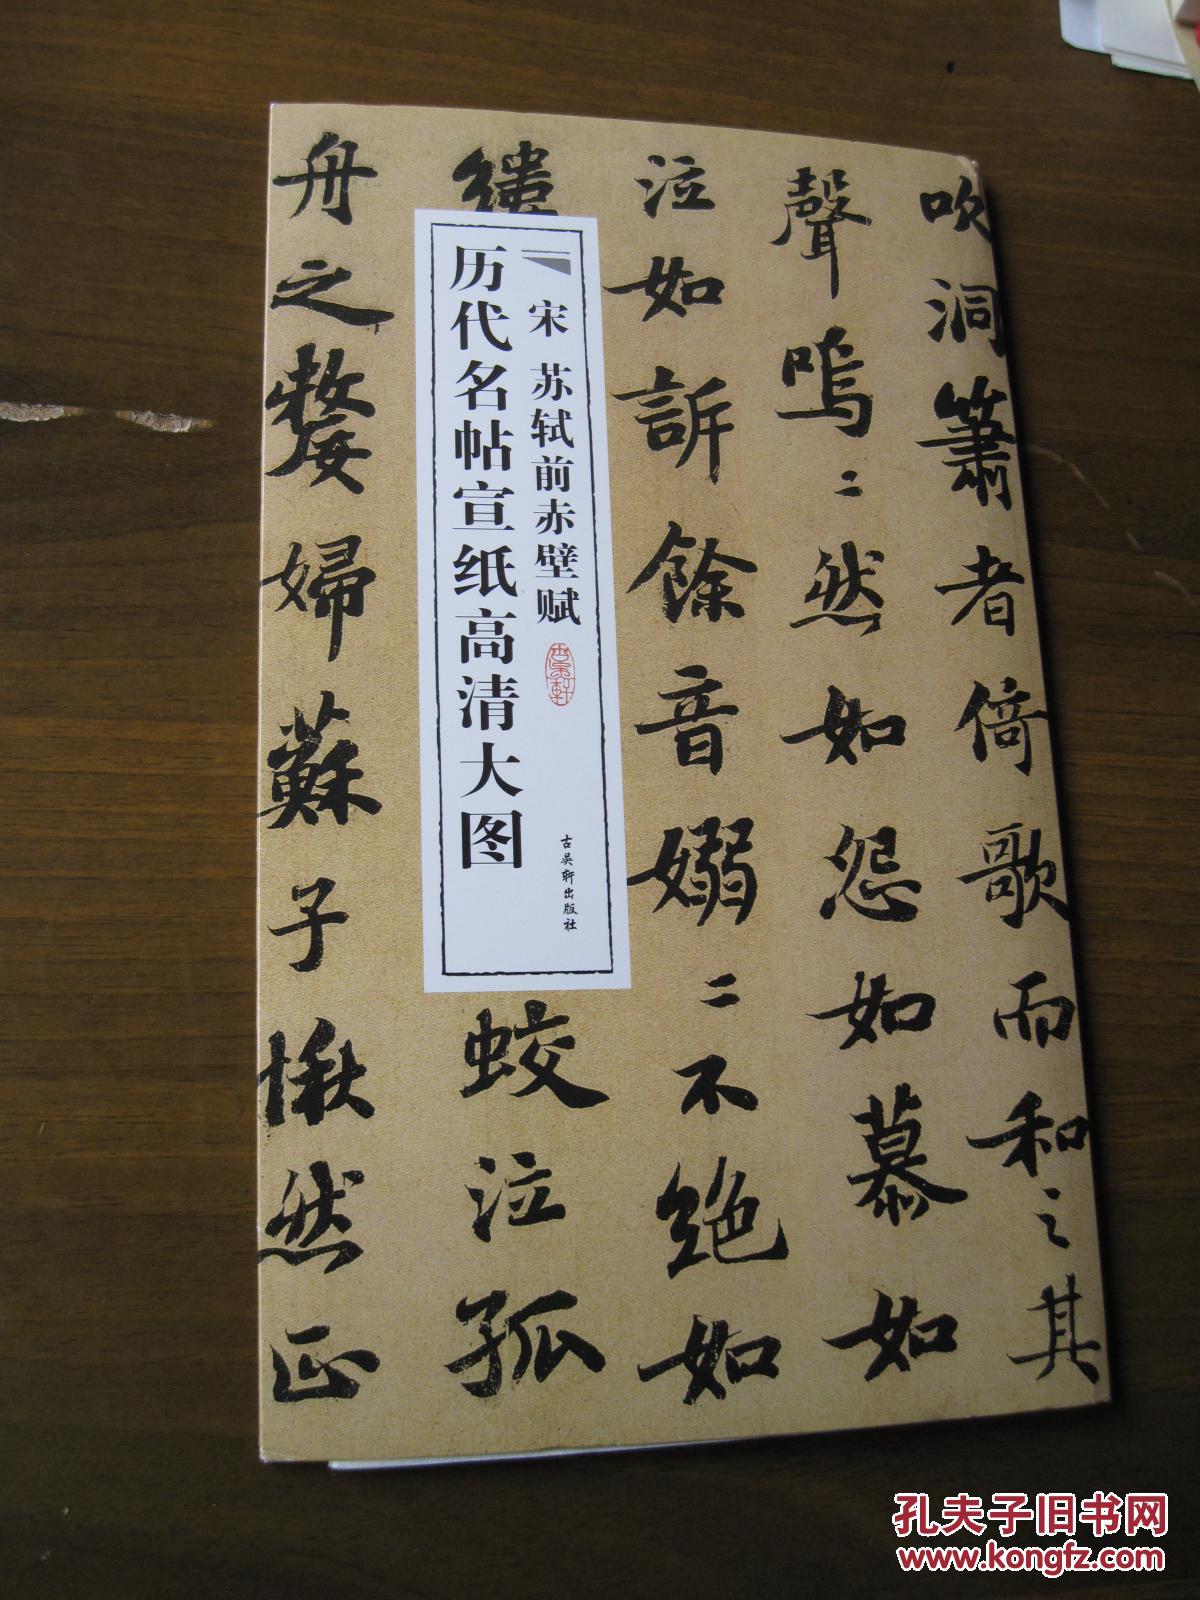 吹洞簫者倚歌而和之其
聲嗚二然如怨如慕如
泣如訴餘音嫋二不絕如
縷
蛟泣孤
舟之嫠婦蘇子愀然正
宋 苏轼前赤壁赋
历代名帖宣纸高清大图
古吴轩出版社
孔夫子旧书网
www.kongfz.com